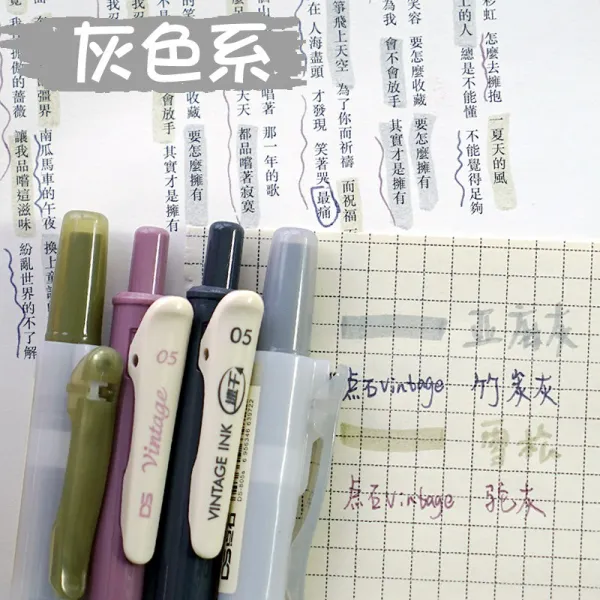 灰色系
彩虹 怎麼去擁抱
一夏天的風
上的人 總是不能懂
不能覺得足夠
笑容 要怎麼收藏 要怎麼擁有
為我 會不會放手 其實才是擁有
箏飛上天空 為了你而祈禱 而祝福
在 人海盡頭 才發現 笑著哭 最痛
唱著 那一年的歌
天天 都品嚐著寂寞
要怎麼收藏 要怎麼擁有
不會放手 其實才是擁有
傲的薔薇 讓我品嚐這滋味
疆界 南瓜馬車的午夜
紛亂世界的不了解
亚麻灰
点石vintage 竹炭灰
雪松
点石vintage 驼灰
05
Vintage
DS
05
速干
VINTAGE INK
DS点石
DS-805a
6 956346 639229